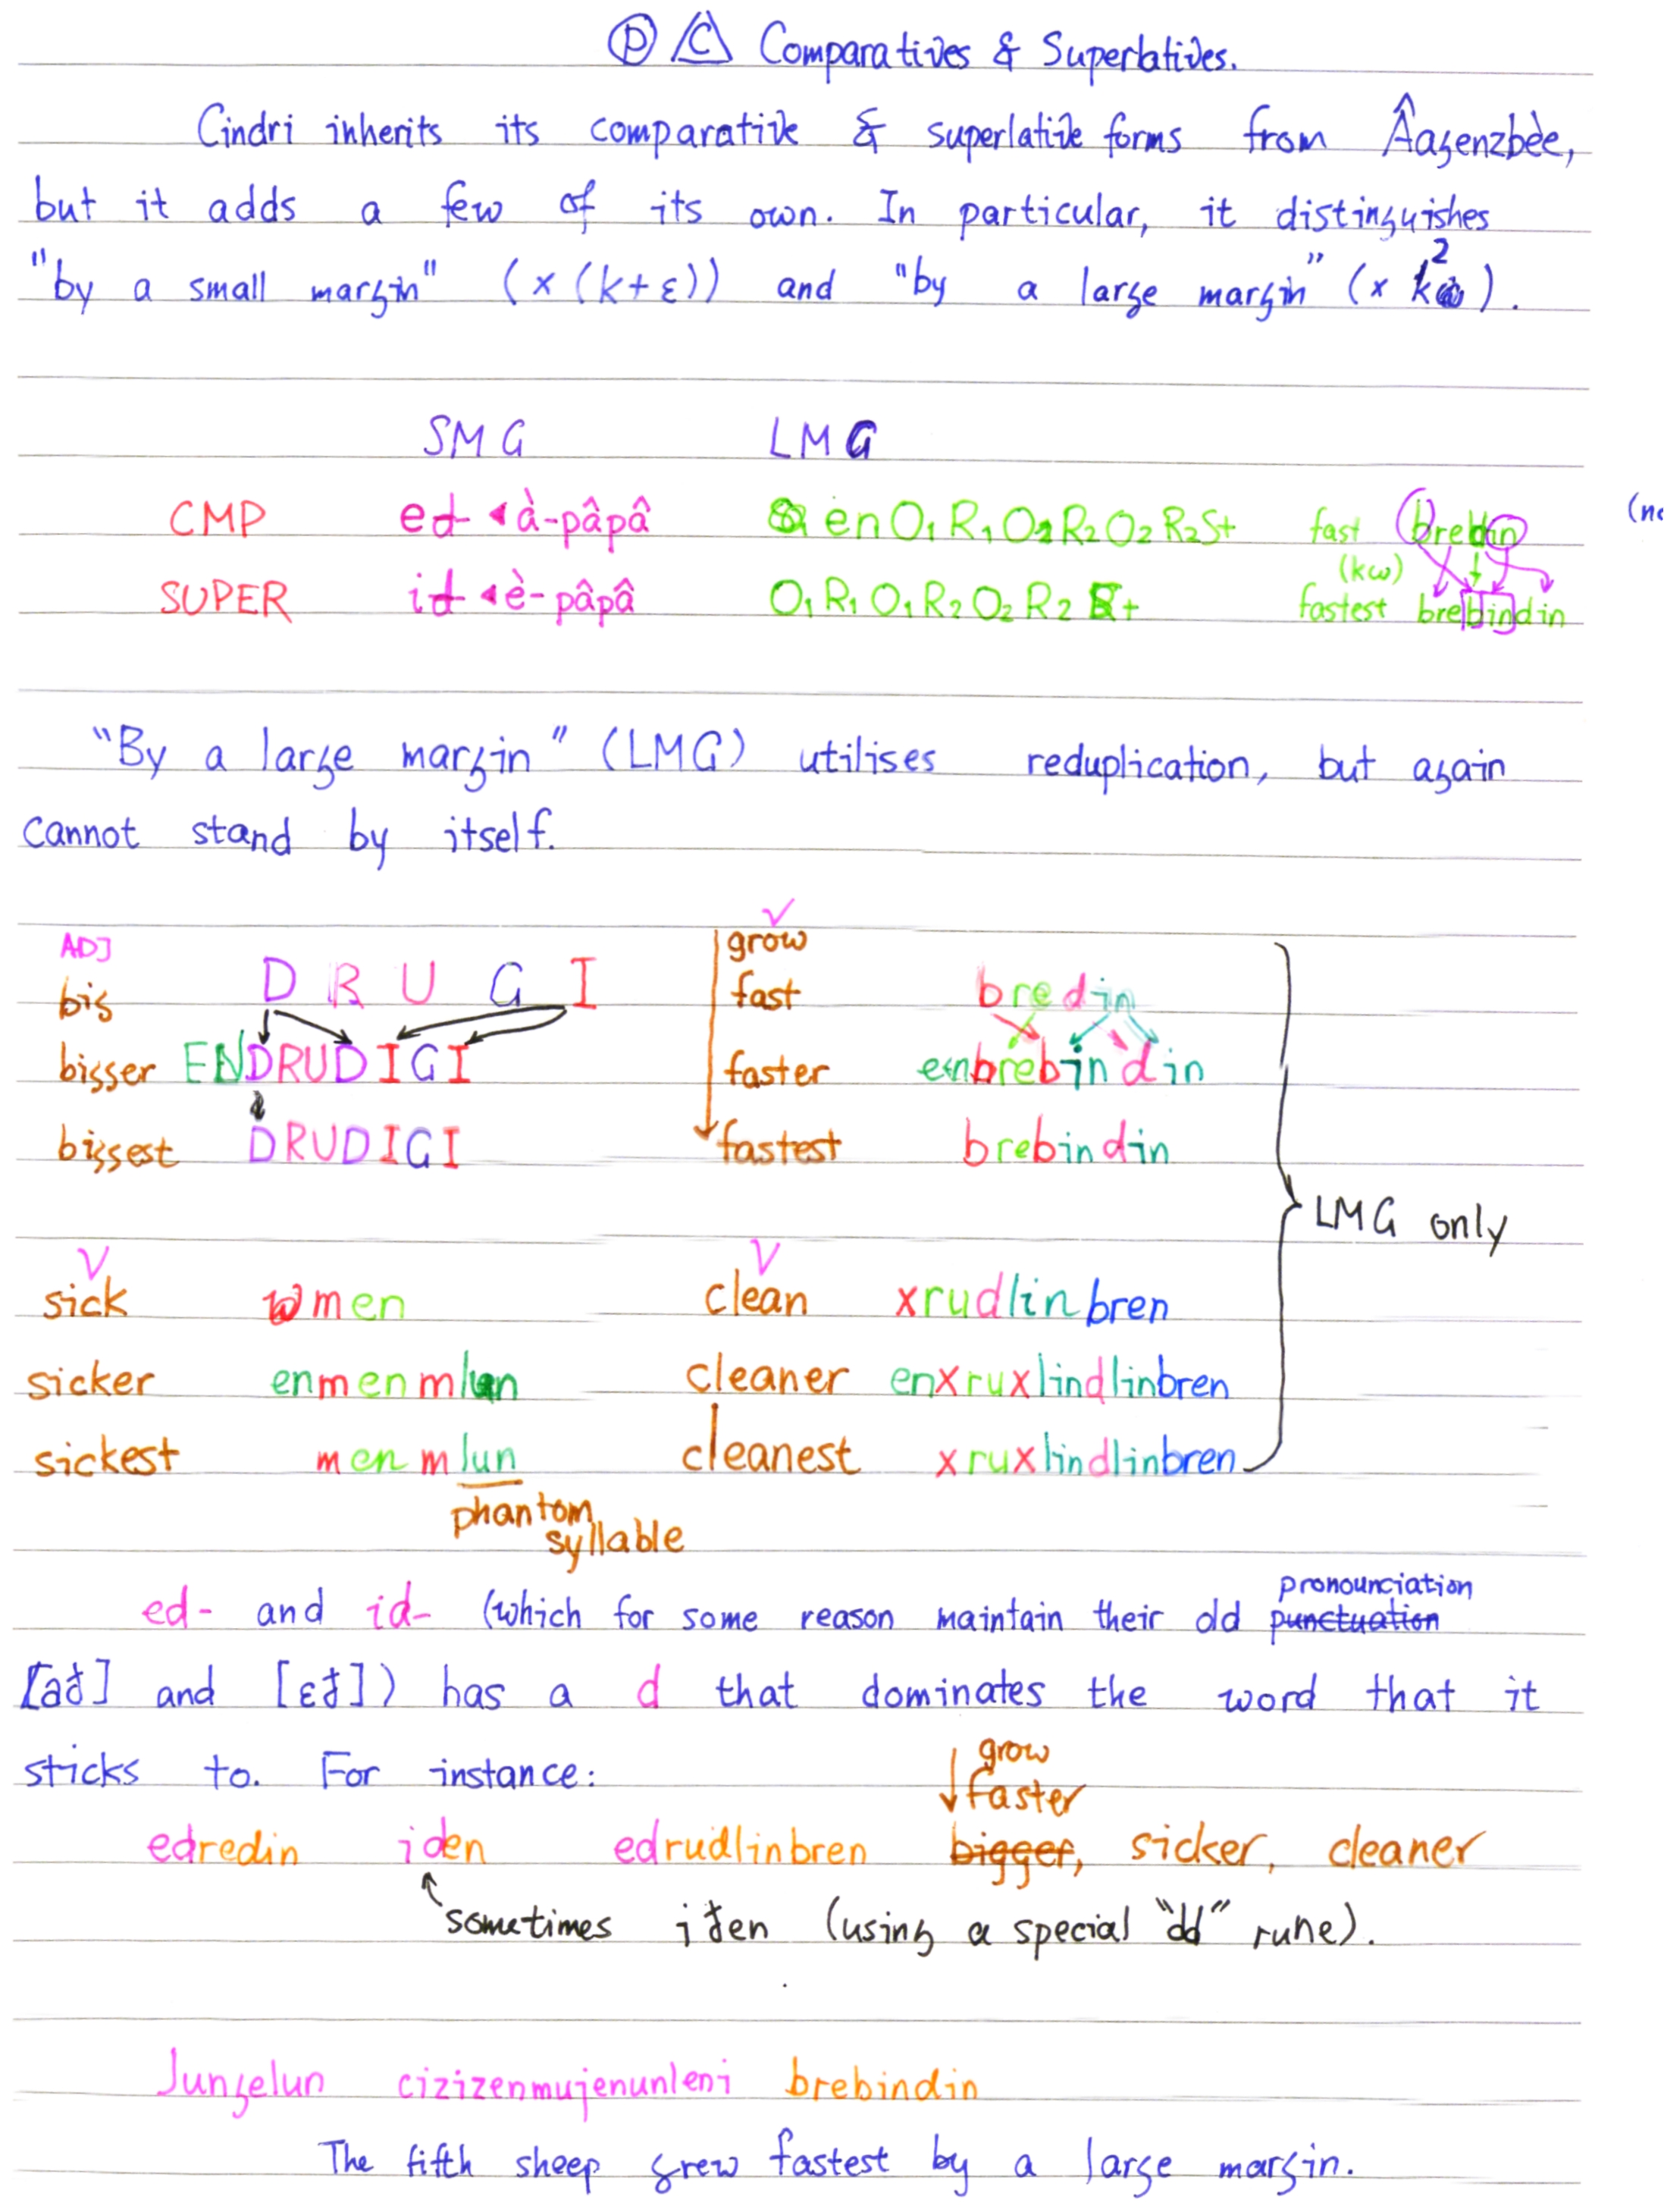 Ⓟ C Comparatives & Superlatives.
Cindri inherits its comparative & superlative forms from Âagenzbèe,
but it adds a few of its own. In particular, it distinguishes
"by a small margin" (x (k+ε)) and "by a large margin" (x k²).
SMG LMG
CMP ed- <à-pâpâ enO₁R₁O₂R₂O₂R₂S+ fast bredin
(kω)
SUPER id- <è-pâpâ O₁R₁O₁R₂O₂R₂+ fastest brebindin
"By a large margin" (LMG) utilises reduplication, but again
cannot stand by itself.
ADJ V
big DRUGI grow fast bredin
bigger ENDRUDIGI faster enbrebindin
biggest DRUDIGI fastest brebindin
LMG only
V V
sick men clean xrudlinbren
sicker enmenmlun cleaner enxruxlindlinbren
sickest menmlun cleanest xruxlindlinbren
phantom syllable
ed- and id- (which for some reason maintain their old punctuation pronounciation
[að] and [ɛð]) has a d that dominates the word that it
sticks to. For instance:
grow
edredin iden edrudlinbren bigger, faster sicker, cleaner
sometimes iđen (using a special "dd" rune).
Jungelun cizizenmujenunleni brebindin
The fifth sheep grew fastest by a large margin.